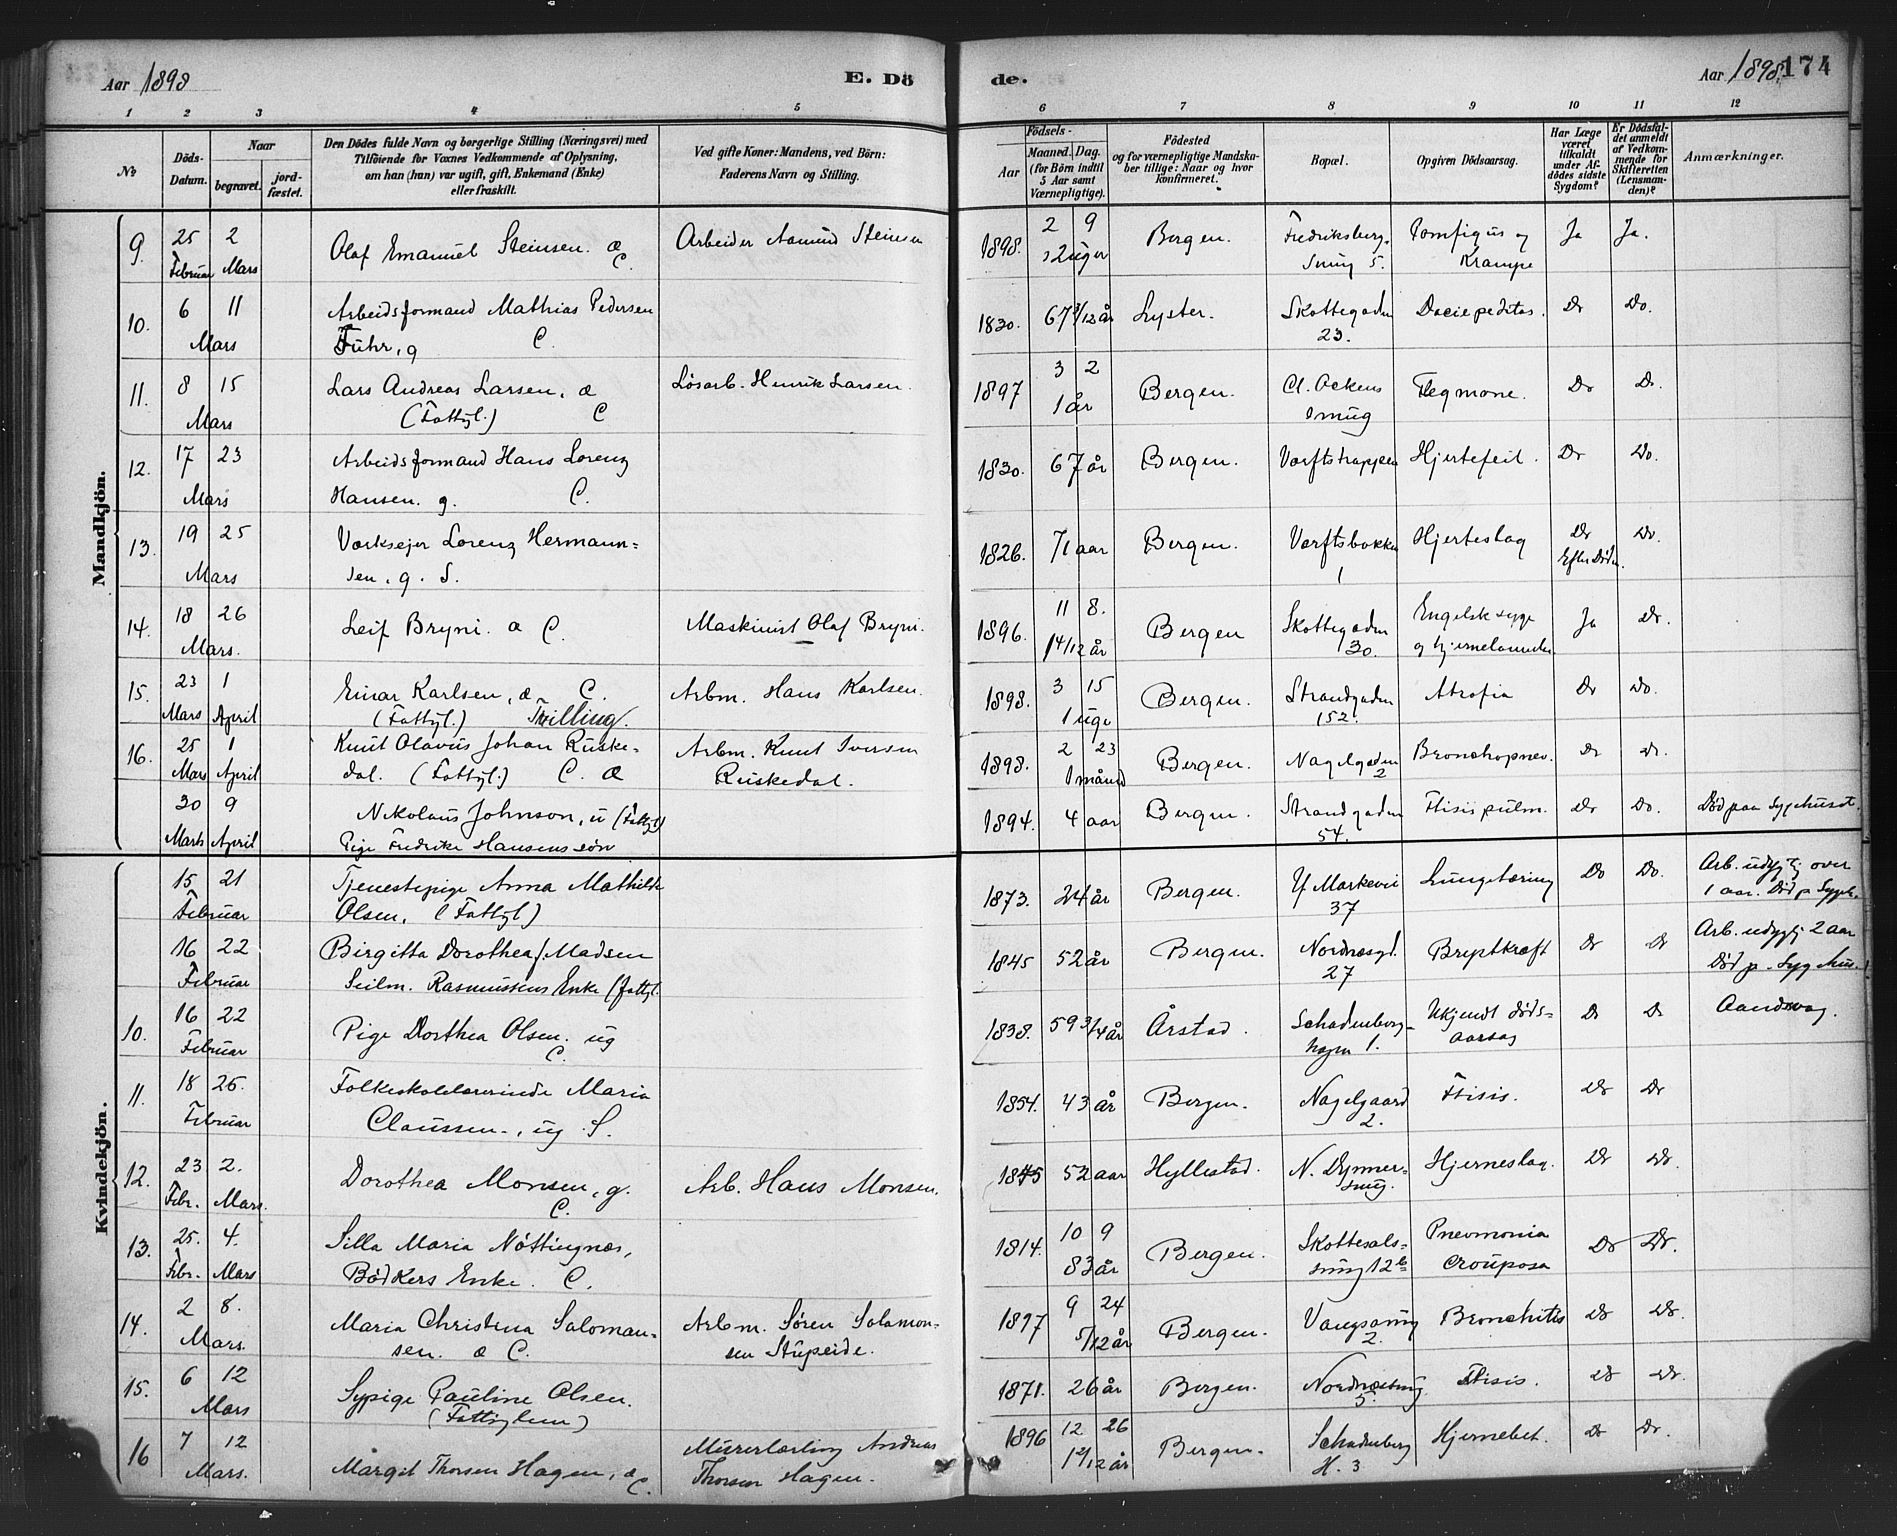 Aar 1898
E. Dö
de.
Aar 1898.
174
1 2 3 4 5
6 7 8 9 10 11 12
No
Döds-Datum.
Naar
begravet.
jord-fæstet.
Den Dödes fulde Navn og borgerlige Stilling (Næringsvei) med
Tilföiende for Voxnes Vedkommende af Oplysning,
om han (hun) var ugift, gift, Enkemand (Enke)
eller fraskilt.
Ved gifte Koner: Mandens, ved Börn:
Faderens Navn og Stilling.
Födsels-
Aar
Maaned. Dag.
(for Börn indtil
5 Aar samt
Værnepligtige).
Födested
og for værnepligtige Mandska-
ber tillige: Naar og hvor
konfirmeret.
Bopæl.
Opgiven Dödsaarsag.
Har Læge
været
tilkaldt
under Af-
dödes sidste
Sygdom?
Er Dödsfal-
det anmeldt
af Vedkom-
mende for
Skifteretten
(Lensman-
den)?
Anmærkninger.
Mandkjön.
9. 25 2 Olaf Emanuel Steinsen. æ Arbeider Aamund Steinsen 1898. 2 9 Bergen. Fredriksberg- Pomfigus og Ja Ja.
Februar Mars C. 2 uger smug 5. Krampe
10. 6 11 Arbeidsformand Mathias Pedersen 1830. 67 3/12 år Lyster. Skottegaden Do Do.
Mars Fuhr, g C. 23.
11. 8 15 Lars Andreas Larsen, æ Løsarb. Henrik Larsen. 1897 3 2 Bergen. Cl. Ockens Flegmone. Do Do.
Mars (Fattyl.) C 1 år smug
12. 17 23 Arbeidsformand Hans Lorenz 1830. 67 år Bergen. Værftstrappen Hjertefeil. Do Do.
Mars Hansen. g. C.
13. 19 25 Værksejer Lorenz Hermann= 1826. 71 aar Bergen. Værftsbakken Hjerteslag Do Do.
Mars sen, g. S. 1 Efter Døden.
14. 18 26 Leif Bryni. æ C. Maskinist Olaf Bryni. 1896. 11 8. Bergen Skottegaden Engelsk syge Ja Do.
Mars. 1 4/12 år 30.
15. 23 1 Einar Karlsen, æ C. Arbm. Hans Karlsen. 1898. 3 15 Bergen. Strandgaden Atrofia Do Do.
Mars April (Fattyl.) Tvilling. 1 uge 152.
16. 25 1 Knut Olavus Johan Ruske- Arbm. Knut Iversen 1898. 2 23 Bergen. Nagelgaden Bronchopnev. Do Do.
Mars April dal. (Fattyl.) C. æ Ruskedal. 1 måned 2
30 9 Nikolaus Johnson, u (Fattyl) 1894. 4 aar Bergen. Strandgaden Ftisis pulm. Do Do. Død paa Sygehuset.
Marts April Pige Fredrike Hansens søn 54.
Kvindekjön.
15 21 Tjenestepige Anna Mathilde 1873. 24 år Bergen. Y. Markevei Lungetæring Do Do. Arb. udygtig over
Februar Olsen, (Fattyl) 37 1 aar. Død p. Sygeh.
16 22 Birgitta Dorothea f. Madsen 1845 52 år Bergen. Nordnæsgd. Brystkræft Do Do Arb. udygtig 2 aar
Februar Seilm. Rasmussens Enke (fattyl. 27 Død p. Sygehus.
10. 16 22 Pige Dorthea Olsen. ug 1838. 59 3/4 år Årstad. Schadenberg- Ukjendt døds- Do Do Aandssvag.
Februar C. hagen 1. aarsag
11. 18 26. Folkeskolelærerinde Maria 1854. 43 år Bergen. Nagelgaard Ftisis. Do Do
Februar Claussen., ug. S. 2.
12. 23 2. Dorothea Monsen, g. Arb. Hans Monsen. 1845 52 aar Hyllestad. N. Dynner- Hjerneslag. Do Do.
Febr. Mars. C. smug.
13. 25. 4. Silla Maria Nøttingnæs, 1814. 10 9 Bergen. Skottesals- Pnevmonia Do Do.
Febr. Mars Bødkers Enke. C. 83 år smug 12 b crouposa
14. 2 8. Maria Christina Saloman- Arbm. Søren Salamon- 1897 9 24 Bergen. Vaugsamug Bronchitis Do Do.
Mars. sen. æ C. sen Stupeide. 5/12 år 2.
15. 6 12 Sypige Pauline Olsen. 1871. 26 år Bergen. Nordnæsmug Ftisis. Do Do.
Mars (Fattiglem) 5.
16 7 12 Margit Thorsen Hagen, æ Murerlærling Andreas 1896 12 26 Bergen. Schadenberg Hjernebet. Do Do.
Mars. C. Thorsen Hagen. 1 2/12 år H. 3